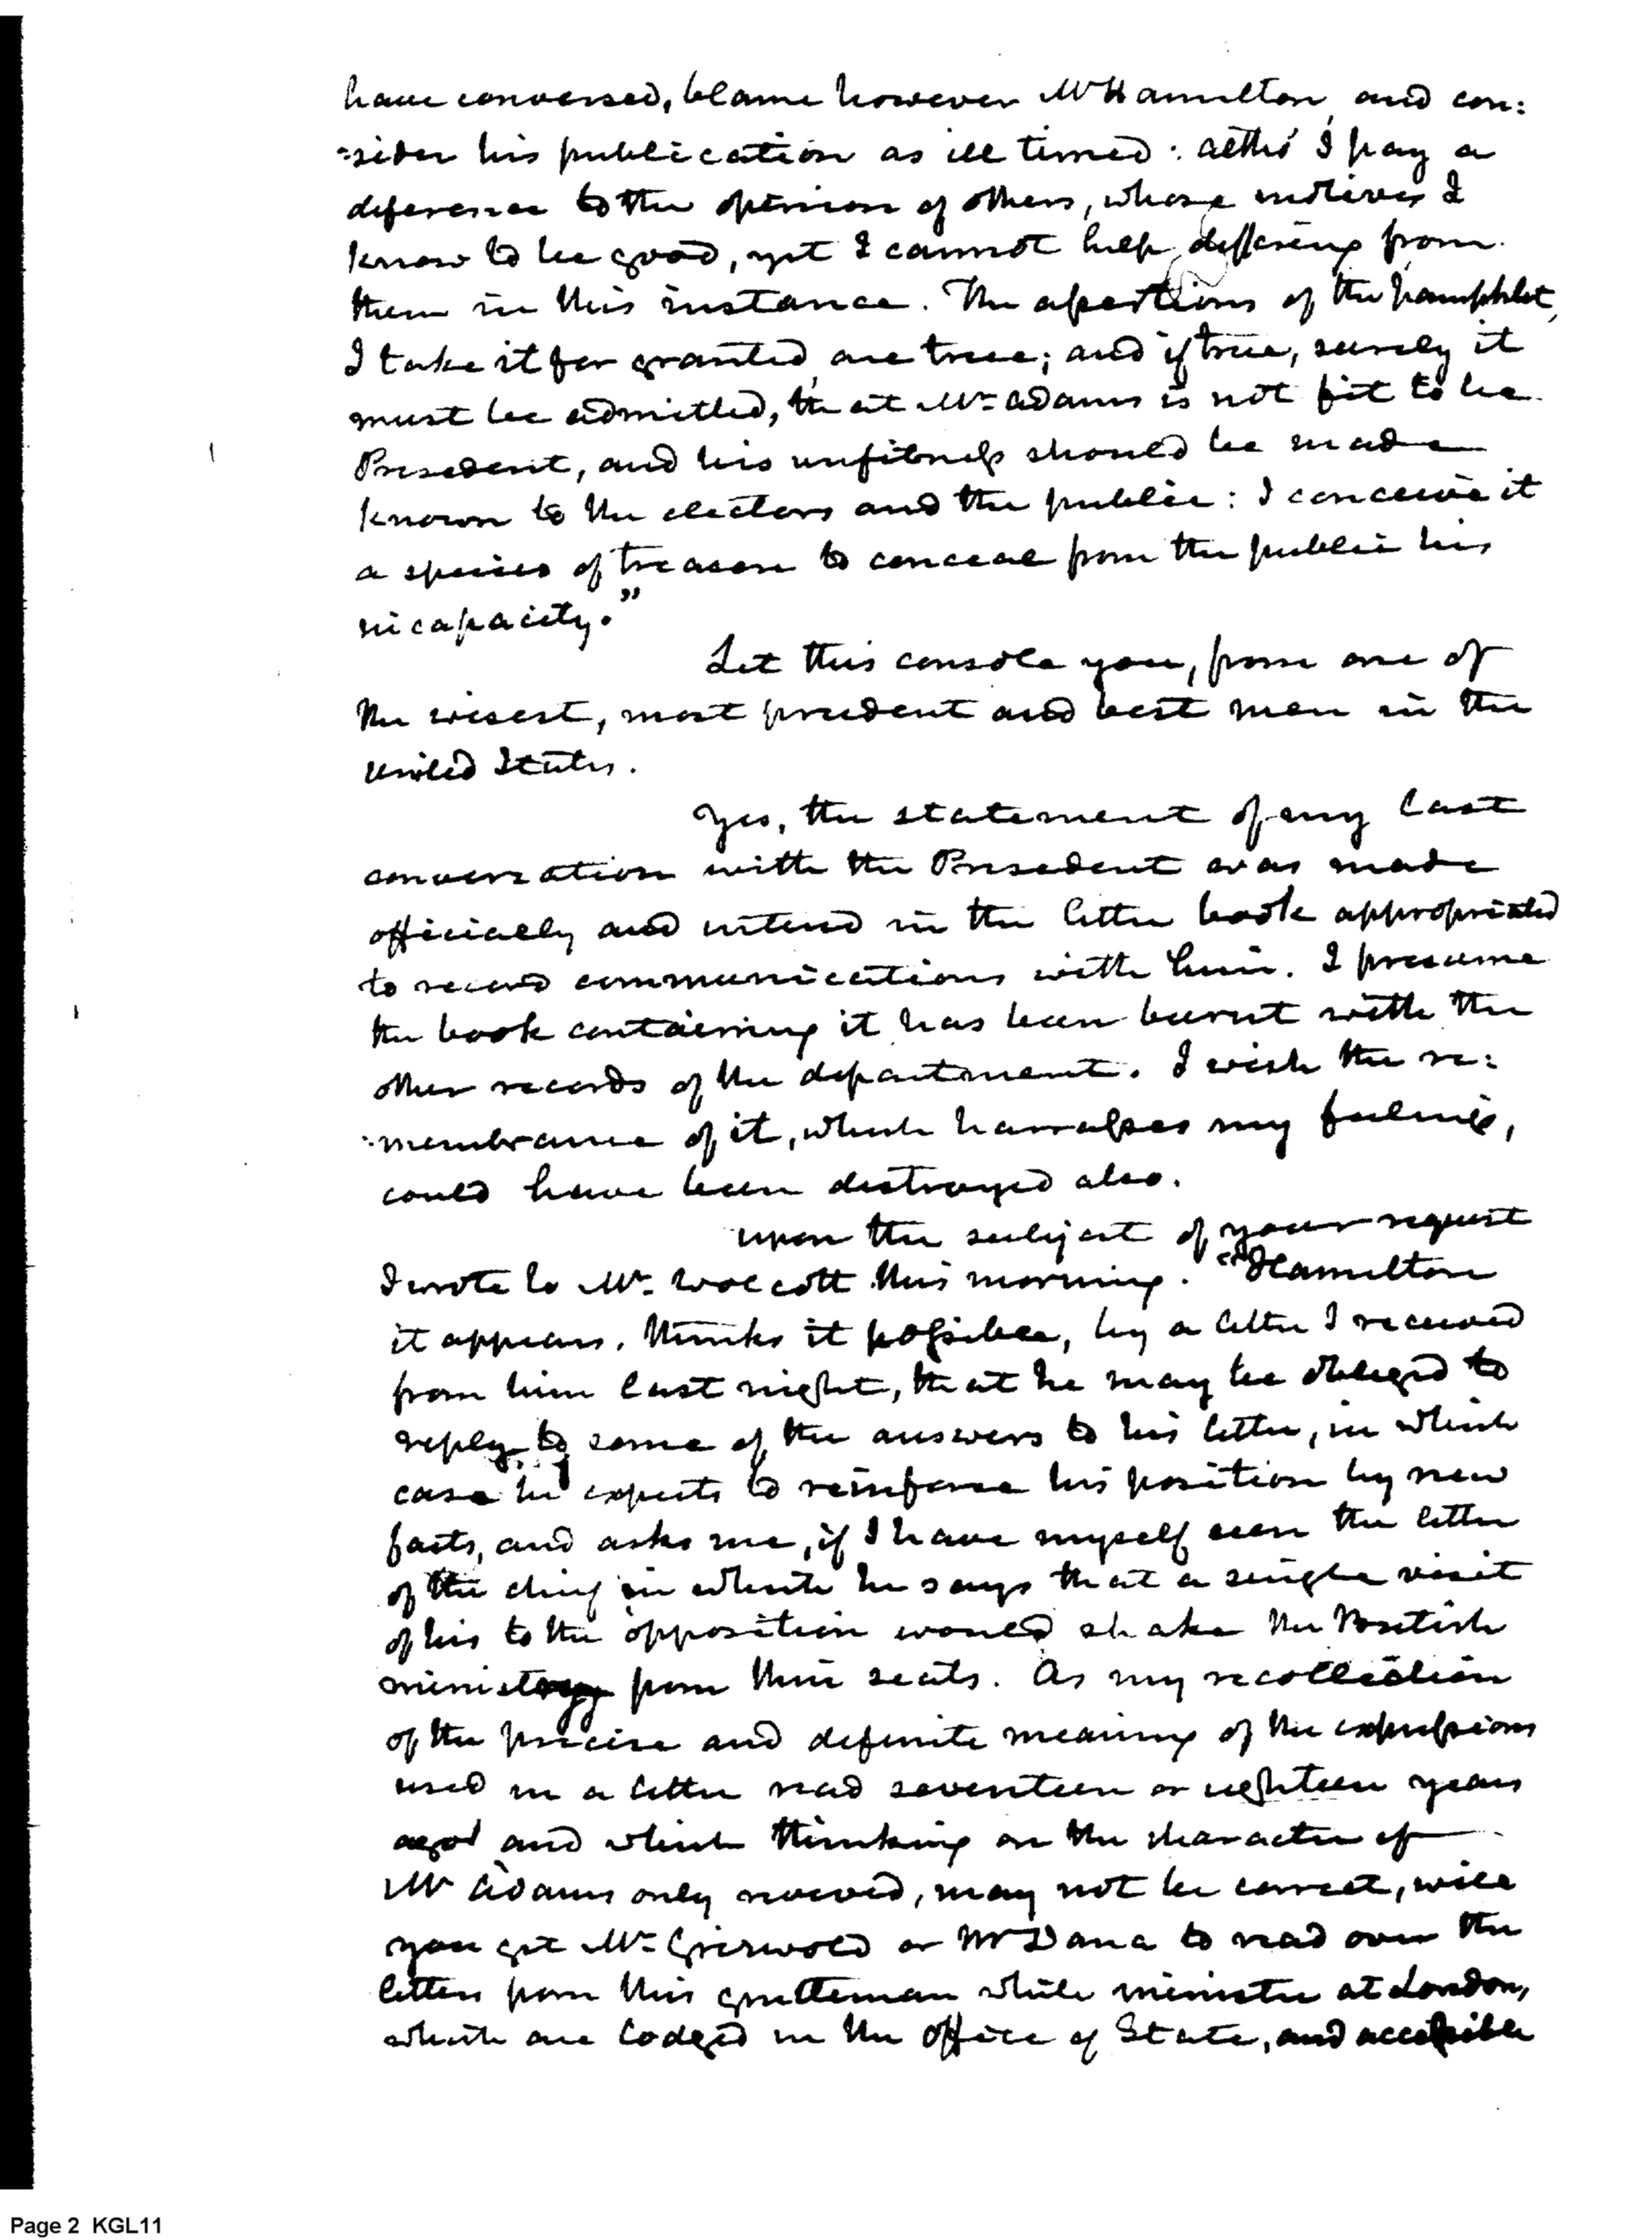 have conversed, blame however Mr Hamilton, and con:
:sider his publication as ill timed: altho' I pay a
deference to the opinion of others, whose motives I
know to be good, yet I cannot help differing from
them in this instance. The assertions of the pamphlet,
I take it for granted, are true; and if true, surely it
must be admitted, that Mr. Adams is not fit to be
President, and his unfitness should be made
known to the electors and the public: I conceive it
a species of treason to conceal from the public his
incapacity."
Let this console you, from one of
the wisest, most prudent and best men in the
United States.
Yes, the statement of my last
conversation with the President was made
officially and entered in the letter book appropriated
to record communications with him. I presume
the book containing it has been burnt with the
other records of the department. I wish the re:
:membrance of it, which harrasses my feelings,
could have been destroyed also.
Upon the subject of your request
I wrote to Mr. Wolcott this morning. "Hamilton
it appears, thinks it possible, by a letter I received
from him last night, that he may be obliged to
reply to some of the answers to his letter, in which
case he expects to reinforce his position by new
facts, and asks me, if I have myself seen the letter
of the chief in which he says that a single visit
of his to the opposition would shake the British
ministry from their seats. As my recollection
of the precise and definite meaning of the expressions
used in a letter read seventeen or eighteen years
ago and which thinking on the character of
Mr Adams only revived, may not be correct, will
you get Mr. Griswold or Mr Dana to read over the
letters from this gentleman while minister at London,
which are lodged in the office of State, and accessible
Page 2 KGL11